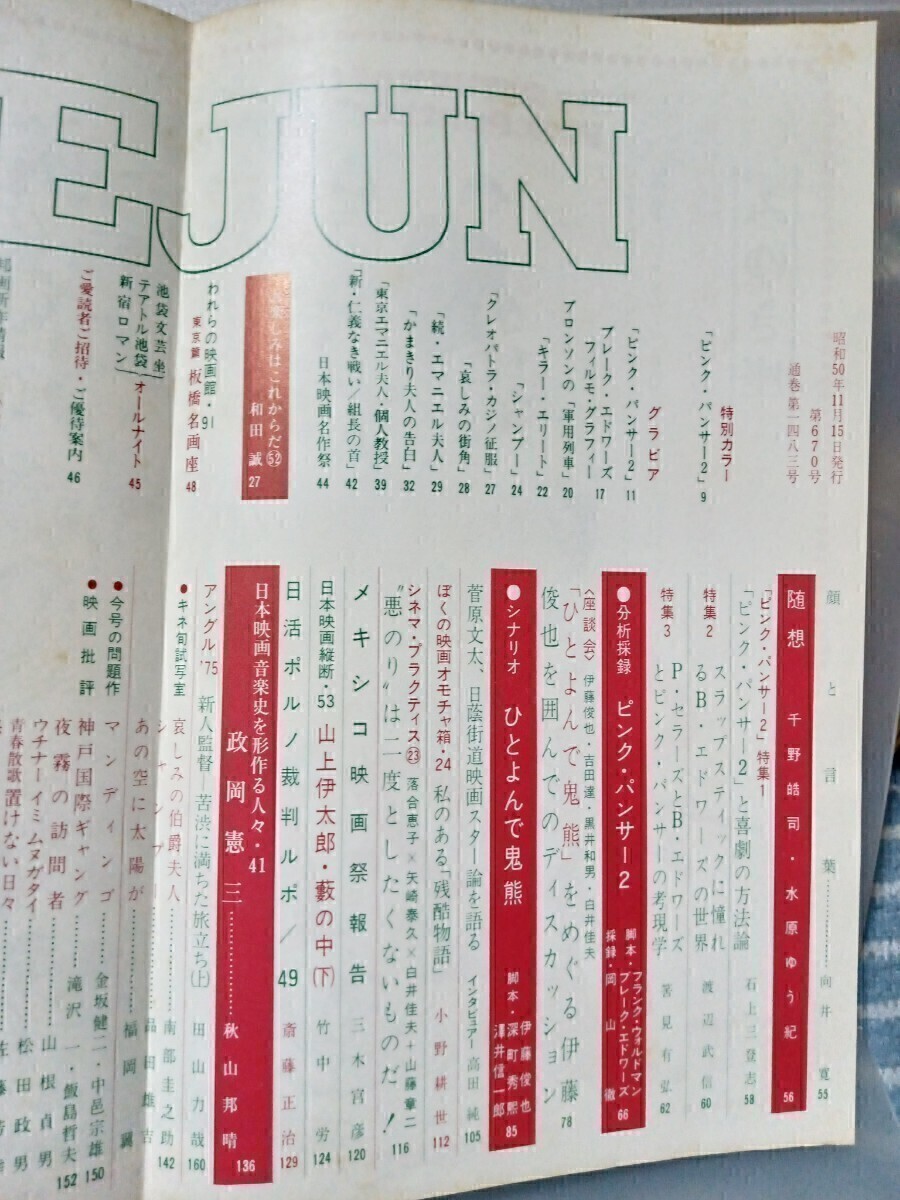 EJUN
昭和50年11月15日発行
第670号
通巻第一四八三号
特別カラー
「ピンク・パンサー2」 9
グラビア
「ピンク・パンサー2」 11
ブレーク・エドワーズ
フィルモ・グラフィー 17
ブロンソンの「軍用列車」 20
「キラー・エリート」 22
「シャンプー」 24
「クレオパトラ・カジノ征服」 27
「哀しみの街角」 28
「続・エマニエル夫人」 29
「かまきり夫人の告白」 32
「東京エマニエル夫人・個人教授」 39
「新・仁義なき戦い/組長の首」 42
日本映画名作祭 44
楽しみはこれからだ㊾ 和田誠 27
われらの映画館・91
東京篇 板橋名画座 48
池袋文芸坐
テアトル池袋
新宿ロマン
オールナイト 45
ご愛読者ご招待・ご優待案内 46
顔と言葉 向井寛 55
随想 千野皓司・水原ゆう紀 56
「ピンク・パンサー2」特集1
「ピンク・パンサー2」と喜劇の方法論 石上三登志 58
特集2 スラップスティックに憧れるB・エドワーズの世界 渡辺武信 60
特集3 P・セラーズとB・エドワーズとピンク・パンサーの考現学 筈見有弘 62
●分析採録 ピンク・パンサー2 脚本・フランク・ウォルドマン ブレーク・エドワーズ 採録・岡山徹 66
〈座談会〉 伊藤俊也・吉田達・黒井和男・白井佳夫
「ひとよんで鬼熊」をめぐる伊藤俊也を囲んでのディスカッション 78
●シナリオ ひとよんで鬼熊 脚本・伊藤俊也 深町秀熙 澤井信一郎 85
菅原文太、日蔭街道映画スター論を語る インタビュアー 高田純 105
ぼくの映画オモチャ箱・24 私のある「残酷物語」 小野耕世 112
シネマ・プラクティス㉓ 落合恵子×矢崎泰久×白井佳夫+山藤章二
“悪のり”は二度としたくないものだ! 116
メキシコ映画祭報告 三木宮彦 120
日本映画縦断・53 山上伊太郎・藪の中(下) 竹中労 124
日活ポルノ裁判ルポ/49 斎藤正治 129
日本映画音楽史を形作る人々・41
政岡憲三……秋山邦晴 136
アングル'75 新人監督 苦渋に満ちた旅立ち(上) 田山力哉 160
●キネ旬試写室 哀しみの伯爵夫人……南部圭之助 142
シャンプー……品田雄吉
あの空に太陽が……福岡翼
●今号の問題作 マンディンゴ……金坂健二・中邑宗雄 150
●映画批評 神戸国際ギャング……滝沢一・飯島哲夫 152
夜霧の訪問者……山根貞男
ウチナー イミ ムヌガタイ……松田政男
青春散歌 置けない日々